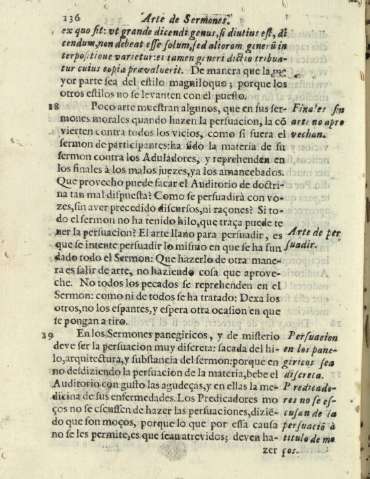 136 Arte de Sermones.
ex quo fit: vt grande dicendi genus, si diutius est, di
cendum, non debeat esse solum, sed aliorum generũ in
terpositione varietur: ei tamen generi dictio tribua-
tur cuius copia prævaluerit. De manera que la ma-
yor parte sea del estilo magniloquo; porque los
otros estilos no se levanten con el puesto.
28 Poco arte muestran algunos, que en sus ser-
mones morales quando hazen la persuacion, la cõ
vierten contra todos los vicios, como si fuera el
sermon de participantes: ha sido la materia de su
sermon contra los Aduladores, y reprehenden en
los finales à los malos juezes, ya los amancebados.
Que provecho puede sacar el Auditorio de doctri-
na tan mal dispuesta? Como se persuadirà con vo-
zes, sin aver precedido discursos, ni raçones? Si to-
do el sermon no ha tenido hilo, que traça puede te
ner la persuacion? El arte llano para persuadir, es
que se intente persuadir lo mismo en que se ha fun
dado todo el Sermon: Que hazerlo de otra mane-
ra es salir de arte, no haziendo cosa que aprove-
che. No todos los pecados se reprehenden en el
Sermon: como ni de todos se ha tratado: Dexa los
otros, no los espantes, y espera otra ocasion en que
se pongan a tiro.
29 En los Sermones panegiricos, y de misterio
deve ser la persuacion muy discreta: sacada del hi-
lo, arquitectura, y substancia del sermon: porque en
no desdiziendo la persuacion de la materia, bebe el
Auditorio con gusto las agudeças, y en ellas la me-
dicina de sus enfermedades. Los Predicadores mo
ços no se escusen de hazer las persuaciones, diziẽ-
do que son moços, porque lo que por essa causa
no se les permite, es que sean atrevidos; deven ha-
zer
Finales sin
arte no apro
vechan.
Arte de per
suadir.
Persuacion
en los pane-
giricos sea
discreta.
Predicado-
res no se es-
cusan de la
persuaciõ à
titulo de mo
ços.